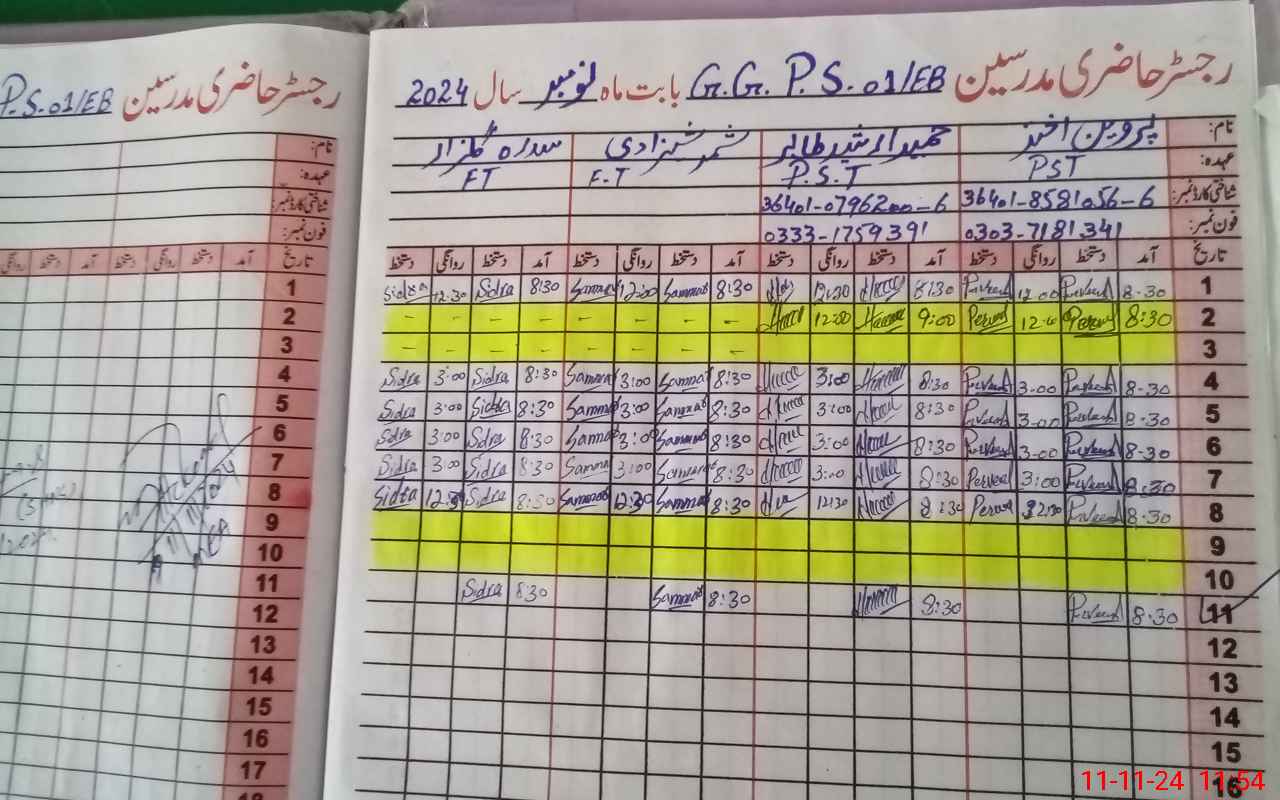 رجسٹر حاضری مدرسین G.G.P.S. 01/EB بابت ماہ نومبر سال 2024
نام: پروین اختر حمیدا رشید طالب ثمر شہزادی سدرہ گلزار
عہدہ: PST P.S.T F.T FT
شناختی کارڈ نمبر: 36401-8581056-6 36401-0796200-6
فون نمبر: 0303-7181341 0333-1759391
تاریخ آمد دستخط روانگی دستخط آمد دستخط روانگی دستخط آمد دستخط روانگی دستخط آمد دستخط روانگی دستخط
1 8-30 Perveen 12.00 Perveen 8:30 12:30 8:30 Sammar 12:00 Sammar 8:30 Sidra 12:30 Sidra
2 8:30 Perveen 12:00 Perveen 9:00 12:00 - - - - - - - -
3 - - - - - - - -
4 8-30 Perveen 3-00 Perveen 8:30 3:00 8:30 Sammar 3:00 Sammar 8:30 Sidra 3:00 Sidra
5 8-30 Perveen 3-00 Perveen 8:30 3:00 8:30 Sammar 3:00 Sammar 8:30 Sidra 3:00 Sidra
6 8-30 Perveen 3-00 Perveen 8:30 3:00 8:30 Sammar 3:00 Sammar 8:30 Sidra 3:00 Sidra
7 8-30 Perveen 3:00 Perveen 8:30 3:00 8:30 Sammar 3:00 Sammar 8:30 Sidra 3:00 Sidra
8 8-30 Perveen 12:30 Perveen 8:30 12:30 8:30 Sammar 12:30 Sammar 8:30 Sidra 12:30 Sidra
9
10
11 8-30 Perveen 8:30 8:30 Sammar 8:30 Sidra
12
13
14
15
16
رجسٹر حاضری مدرسین P.S. 01/EB
نام:
عہدہ:
شناختی کارڈ نمبر:
فون نمبر:
تاریخ آمد دستخط روانگی دستخط آمد دستخط روانگی
1
2
3
4
5
6
7
8
9
10
11
12
13
14
15
16
17
18
11-11-24 11:54